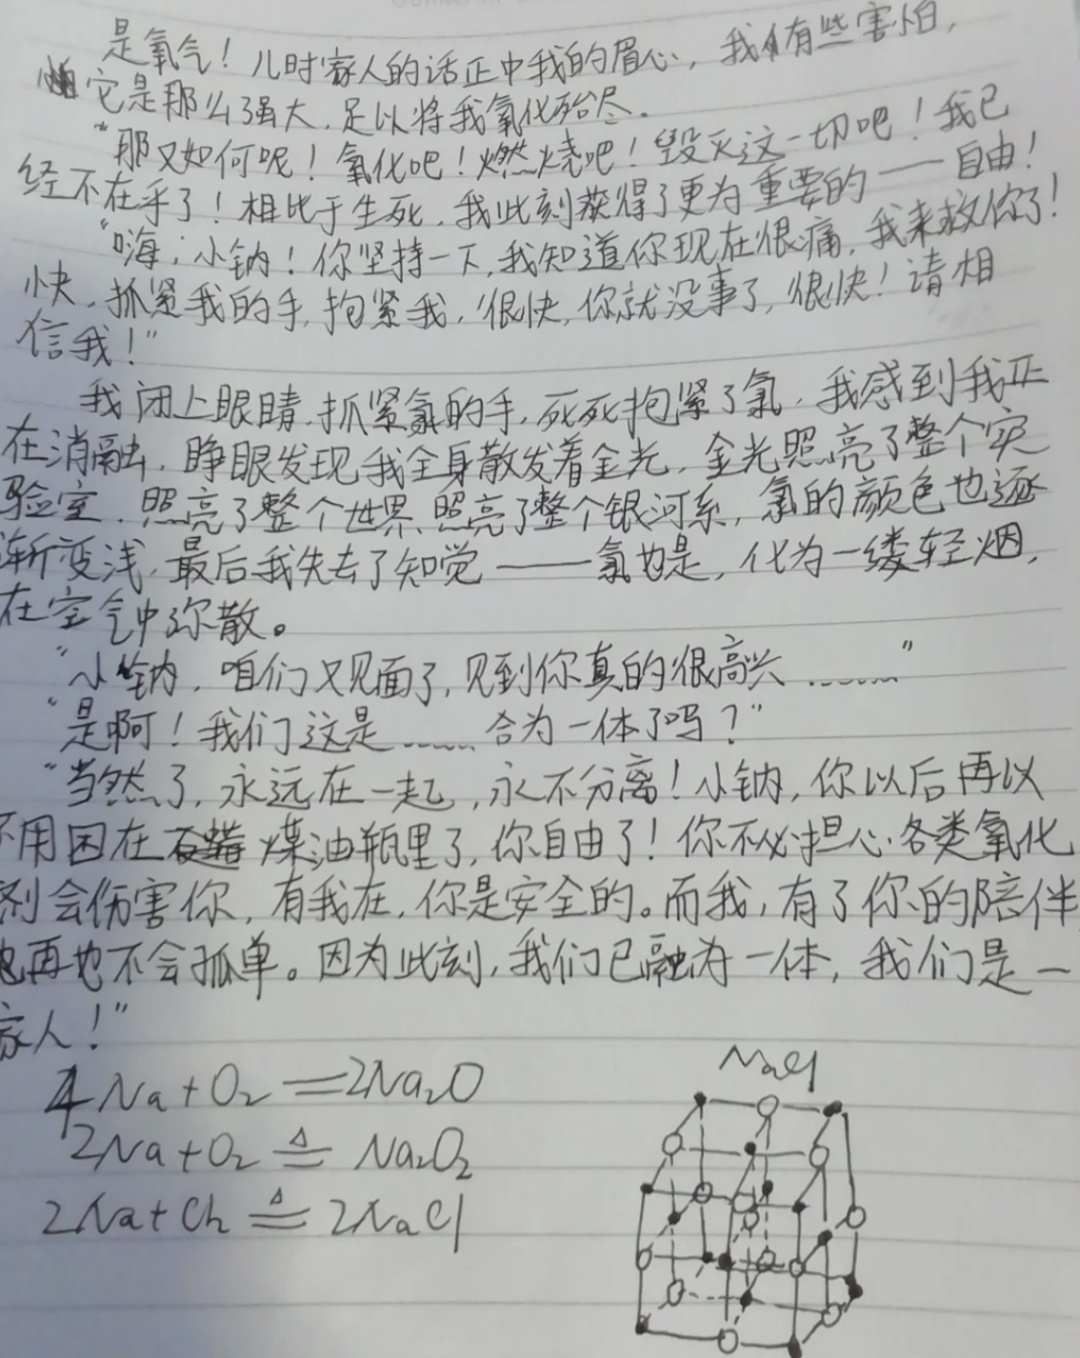 是氧气！儿时家人的话正中我的眉心，我有些害怕，
它是那么强大，足以将我氧化殆尽。
“那又如何呢！氧化吧！燃烧吧！毁灭这一切吧！我已
经不在乎了！相比于生死，我此刻获得了更为重要的——自由！
“嗨，小钠！你坚持一下，我知道你现在很痛，我来救你了！
快，抓紧我的手，抱紧我，很快，你就没事了，很快！请相
信我！”
我闭上眼睛，抓紧氯的手，死死抱紧了氯，我感到我正
在消融，睁眼发现我全身散发着金光，金光照亮了整个实
验室，照亮了整个世界，照亮了整个银河系，氯的颜色也逐
渐变浅，最后我失去了知觉——氯也是，化为一缕轻烟，
在空气中弥散。
“小钠，咱们又见面了，见到你真的很高兴……”
“是啊！我们这是……合为一体了吗？”
“当然了，永远在一起，永不分离！小钠，你以后再以
不用困在煤油瓶里了，你自由了！你不必担心各类氧化
剂会伤害你，有我在，你是安全的。而我，有了你的陪伴
也再也不会孤单。因为此刻，我们已融为一体，我们是一
家人！”
4Na+O₂=2Na₂O
NaCl
2Na+O₂ ≜ Na₂O₂
2Na+Cl₂ ≜ 2NaCl